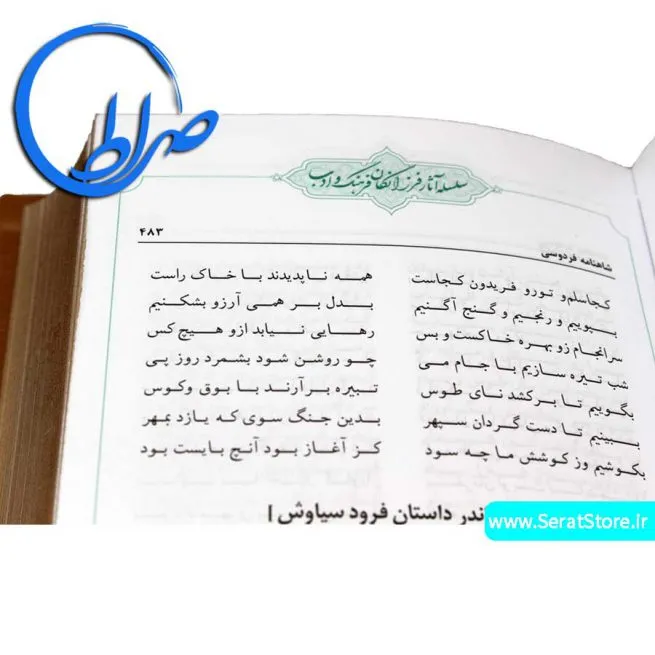 صراط
سلسله آثار فرزانگان فرهنگ و ادب
شاهنامه فردوسی ۴۸۳
کجاسلم و تورو فریدون کجاست همه ناپدیدند با خاک راست
بپوییم و رنجیم و گنج آگنیم بدل بر همی آرزو بشکنیم
سرانجام زو بهره خاکست و بس رهایی نیابد ازو هیچ کس
شب تیره سازیم با جام می چو روشن شود بشمرد روز پی
بگوییم تا برکشد نای طوس تبیره برآرند با بوق وکوس
ببینیم تا دست گردان سپهر بدین جنگ سوی که یازد بمهر
بکوشیم وز کوشش ما چه سود کز آغاز بود آنچ بایست بود
ندر داستان فرود سیاوش ]
www.SeratStore.ir